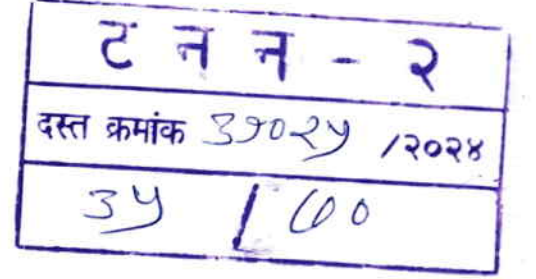 ट न न - २
दस्त क्रमांक ३१०२५ /२०२४
३५ / ७०